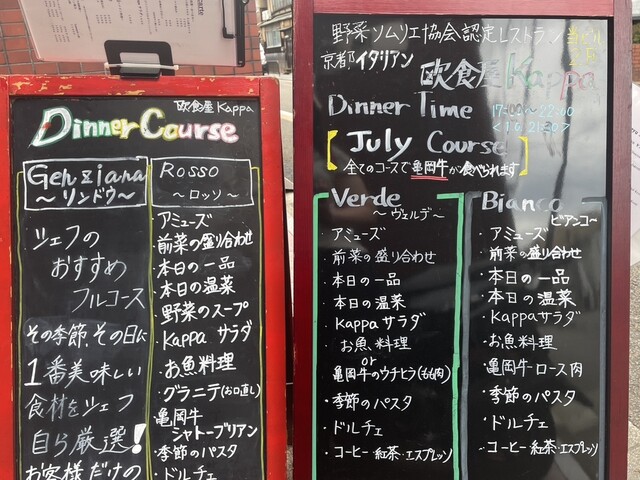 欧食屋 Kappa
Dinner Course
Genziana
～リンドウ～
シェフの
おすすめ
フルコース
その季節、その日に
1番美味しい
食材をシェフ
自ら厳選!
お客様だけの
Rosso
～ロッソ～
アミューズ
・前菜の盛り合わせ
・本日の一品
・本日の温菜
・野菜のスープ
・Kappa サラダ
・お魚料理
・グラニテ(お口直し)
・亀岡牛
シャトーブリアン
・季節のパスタ
・ドルチェ
野菜ソムリエ協会認定レストラン
京都イタリアン
欧食屋 Kappa
Dinner Time
17:00～22:00
July Course
全てのコースで亀岡牛が食べられます
Verde
～ヴェルデ～
・アミューズ
・前菜の盛り合わせ
・本日の一品
・本日の温菜
・Kappaサラダ
・お魚料理
or
亀岡牛のウチヒラ(もも肉)
・季節のパスタ
・ドルチェ
・コーヒー・紅茶・エスプレッソ
Bianco
ビアンコ～
・アミューズ
・前菜の盛り合わせ
・本日の一品
・本日の温菜
・Kappaサラダ
・お魚料理
・亀岡牛ロース肉
・季節のパスタ
・ドルチェ
・コーヒー・紅茶・エスプレッソ